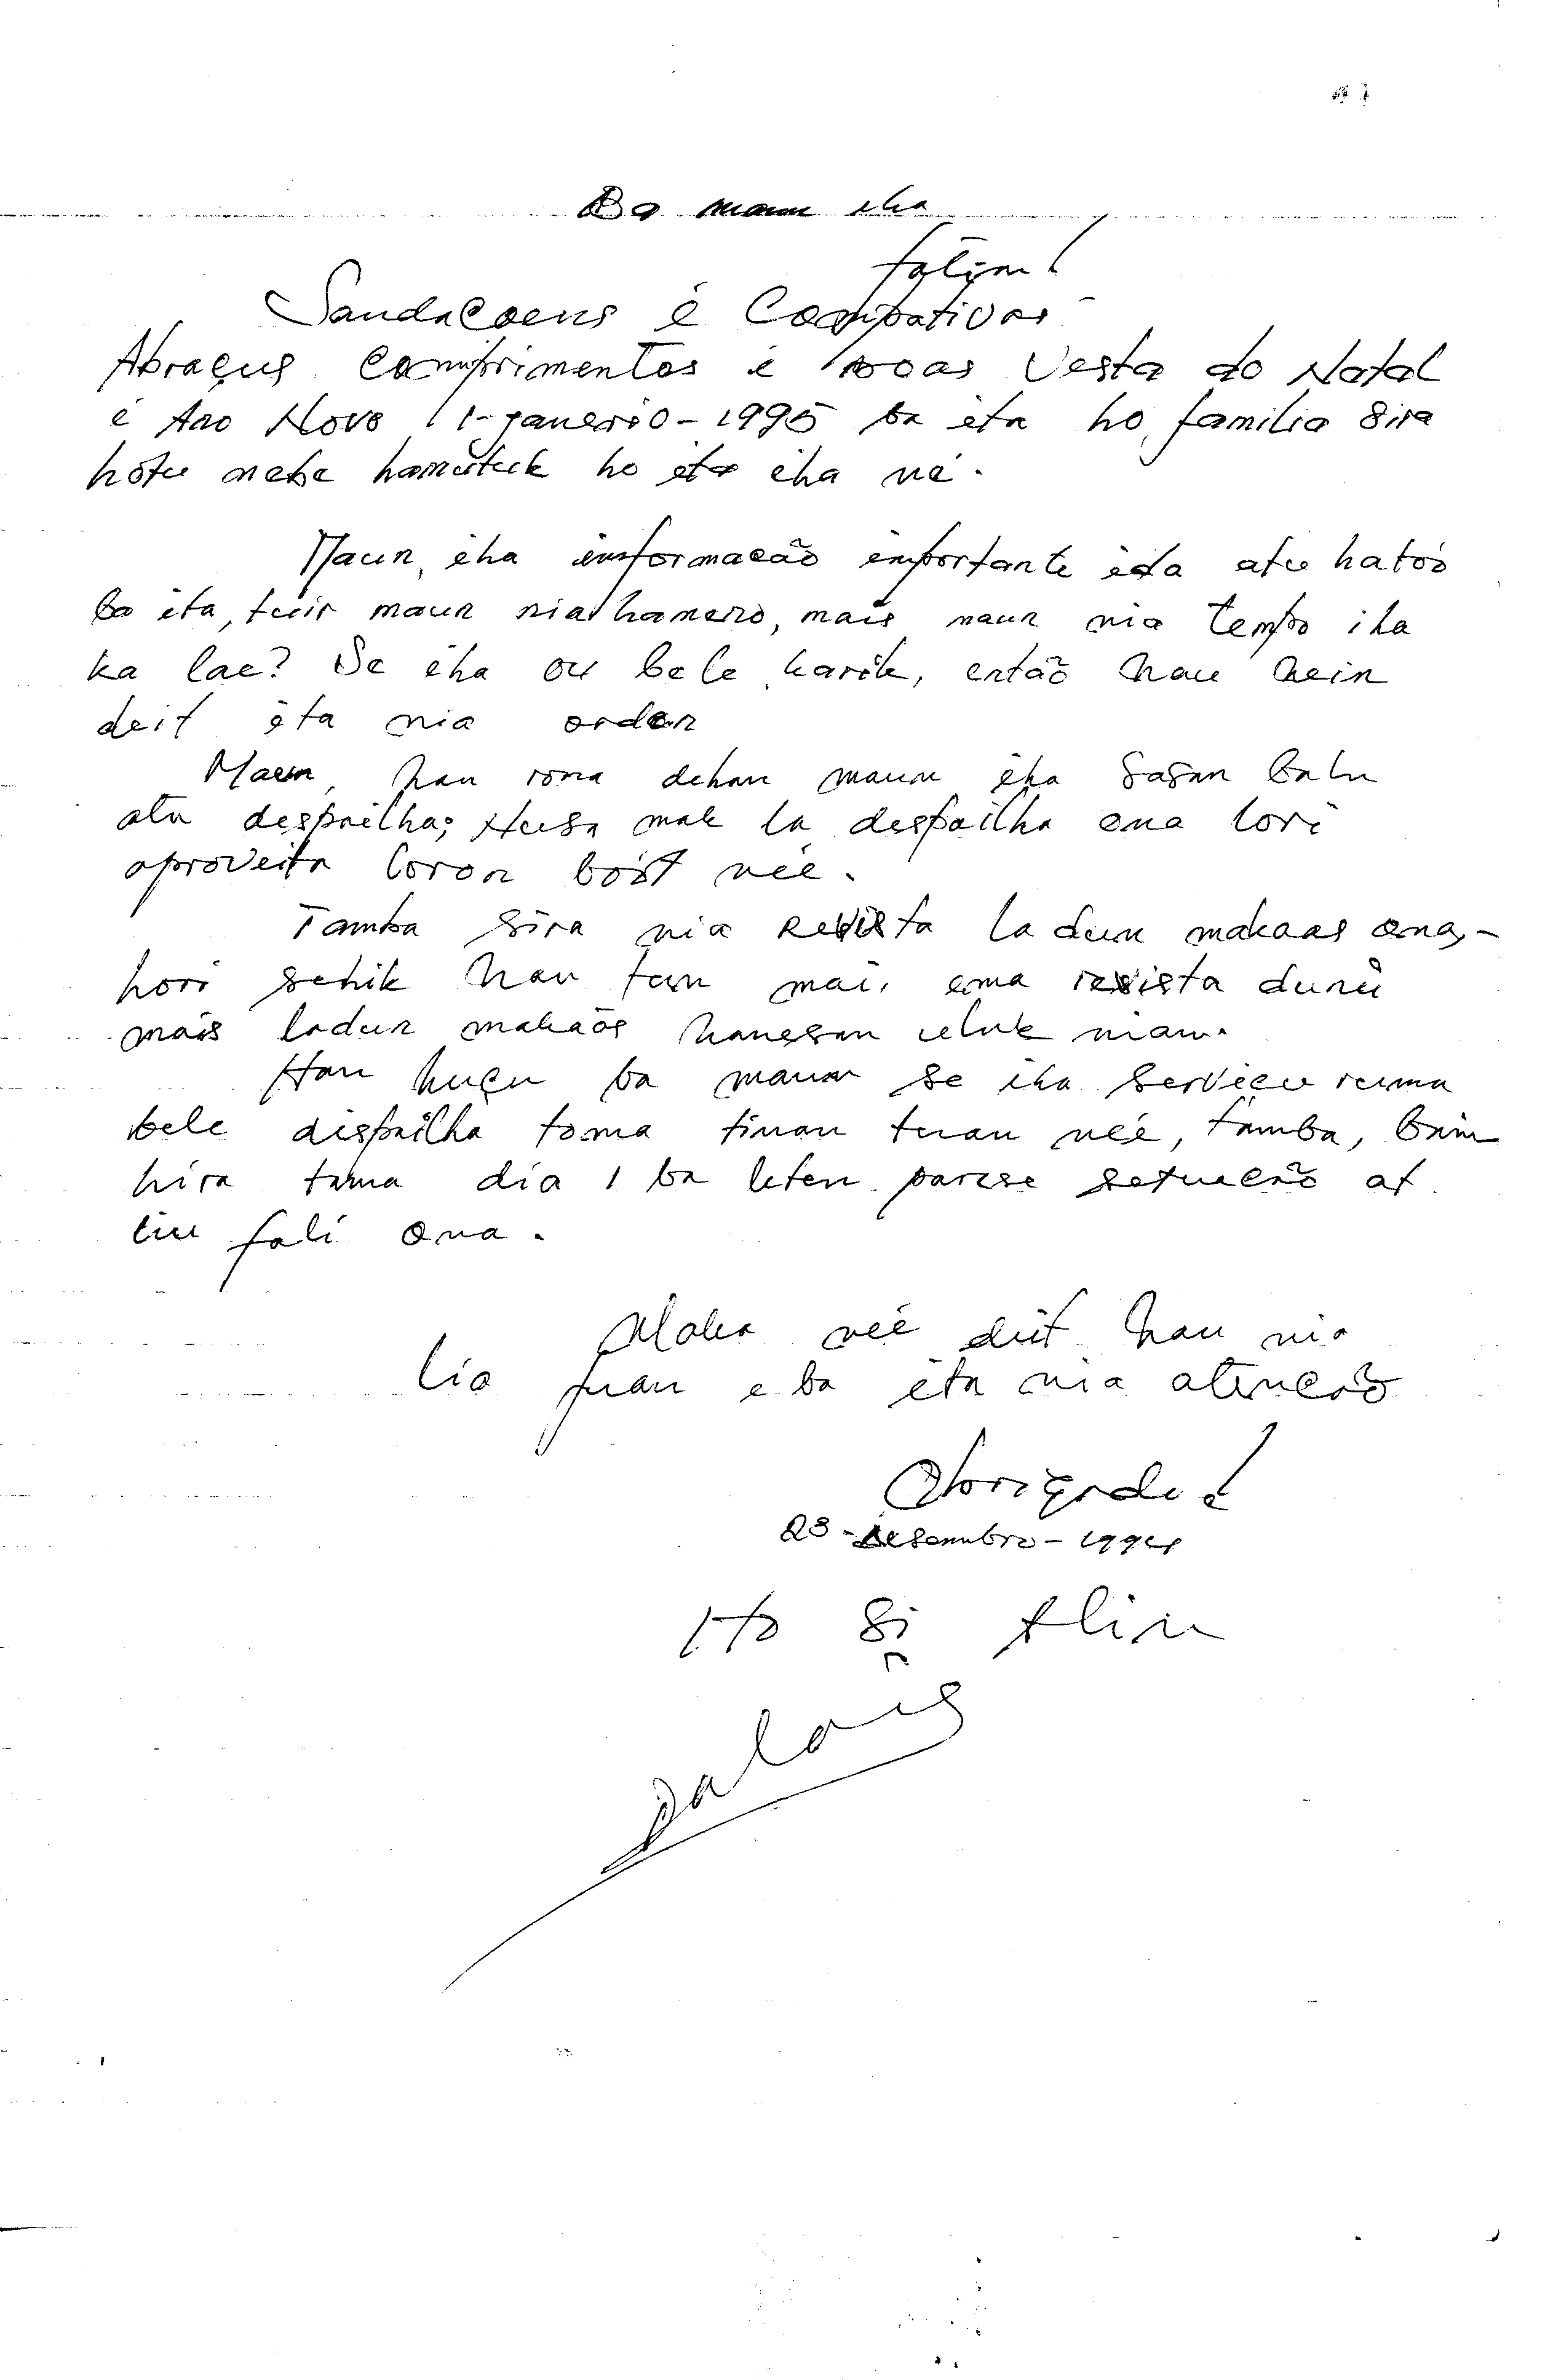 Ba maun iha
fatin!
Saudacoens é Conpativas
Abraçus Comprimentos e boas Vesta do Natal
é Ano Novo 1-Janerio-1995 ba éta ho familia sira
hótu nebe hamutuk ho eta iha né.
Maun, iha informacão importante ida atu hatoó
ba ita, tuir maun nia hanero, mais maun nia tempo iha
ka lae? Se iha ou bele karik, então hau hein
deit éta nia orden
Maun, hau rona dehan maun iha sasan balu
atu despailha; Husu mak la despailha ona lori
aproveita loron boót neé.
Tamba sira nia revista ladun makaas ona,-
hori sehik hau tun mai, ema revista duni
mais ladun makaós hanesan uluk nian.
Hau huçu ba maun se iha serviçu ruma
bele dispailha toma tinan tuan neé, tamba, bain
hira tama dia 1 ba leten parese setucão at
liu fali ona.
Maka neé deit hau nia
lia fuan e ba éta nia atencão
Obrigadu!
23-Desembro-1994
Ho si Alin